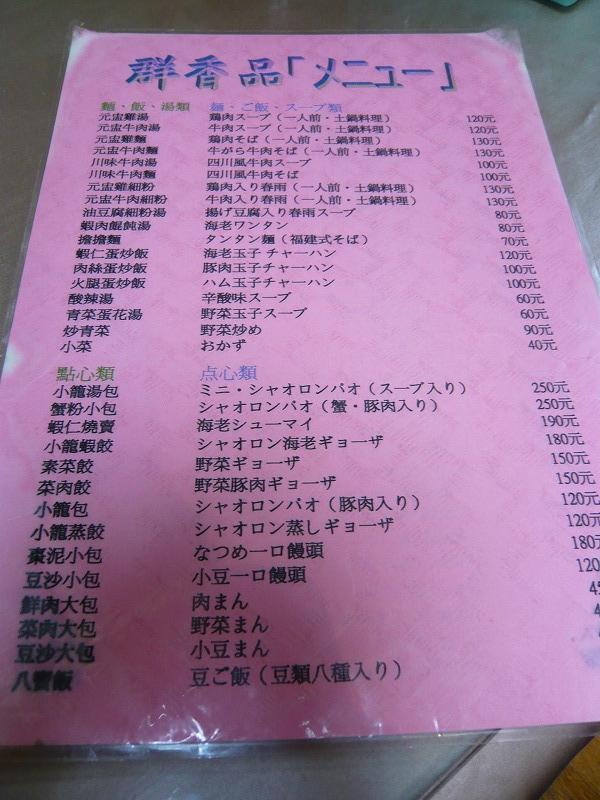 群香品「メニュー」
麵、飯、湯類 麺、ご飯、スープ類
元盅雞湯 鶏肉スープ（一人前・土鍋料理） 120元
元盅牛肉湯 牛肉スープ（一人前・土鍋料理） 120元
元盅雞麵 鶏肉そば（一人前・土鍋料理） 130元
元盅牛肉麵 牛がら牛肉そば（一人前・土鍋料理） 130元
川味牛肉湯 四川風牛肉スープ 100元
川味牛肉麵 四川風牛肉そば 100元
元盅雞細粉 鶏肉入り春雨（一人前・土鍋料理） 130元
元盅牛肉細粉 牛肉入り春雨（一人前・土鍋料理） 130元
油豆腐細粉湯 揚げ豆腐入り春雨スープ 80元
蝦肉餛飩湯 海老ワンタン 80元
擔擔麵 タンタン麺（福建式そば） 70元
蝦仁蛋炒飯 海老玉子チャーハン 120元
肉絲蛋炒飯 豚肉玉子チャーハン 100元
火腿蛋炒飯 ハム玉子チャーハン 100元
酸辣湯 辛酸味スープ 60元
青菜蛋花湯 野菜玉子スープ 60元
炒青菜 野菜炒め 90元
小菜 おかず 40元
點心類 点心類
小籠湯包 ミニ・シャオロンパオ（スープ入り） 250元
蟹粉小包 シャオロンパオ（蟹・豚肉入り） 250元
蝦仁燒賣 海老シューマイ 190元
小籠蝦餃 シャオロン海老ギョーザ 180元
素菜餃 野菜ギョーザ 150元
菜肉餃 野菜豚肉ギョーザ 150元
小籠包 シャオロンパオ（豚肉入り） 120元
小籠蒸餃 シャオロン蒸しギョーザ 120元
棗泥小包 なつめ一口饅頭 180元
豆沙小包 小豆一口饅頭 120
鮮肉大包 肉まん
菜肉大包 野菜まん
豆沙大包 小豆まん
八寶飯 豆ご飯（豆類八種入り）